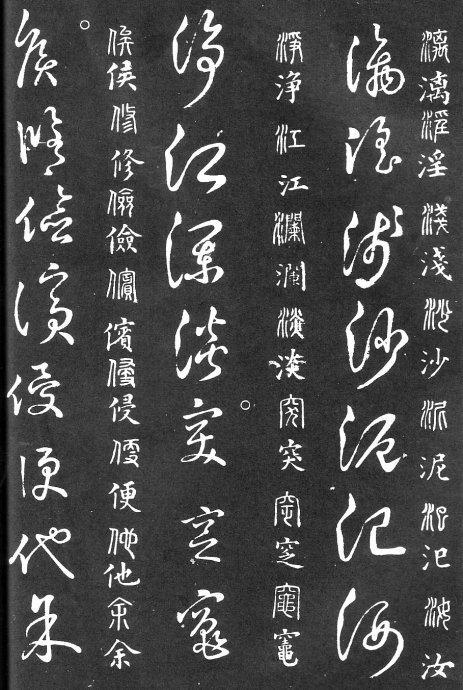 漓漓淫淫淺淺沙沙泥泥汜汜汝汝
漓淫淺沙泥汜汝
淨淨江江瀾瀾淡淡突突窆窆竈竈
淨江瀾淡突窆竈
侯侯修修儉儉儐儐侵侵便便他他余余
侯修儉儐侵便他余